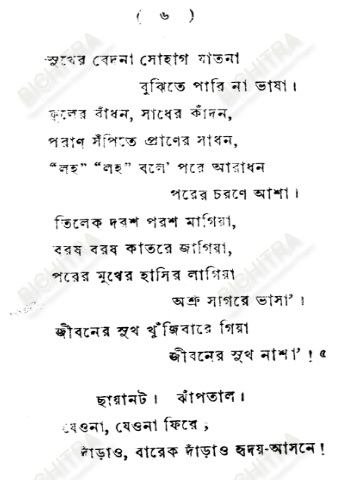 ( ৬ )
সুখের বেদনা সোহাগ যাতনা
বুঝিতে পারি না ভাষা।
ফুলের বাঁধন, সাধের কাঁদন,
পরাণ সঁপিতে প্রাণের সাধন,
“লহ” “লহ” বলে’ পরে আরাধন
পরের চরণে আশা।
তিলেক দরশ পরশ মাগিয়া,
বরষ বরষ কাতরে জাগিয়া,
পরের মুখের হাসির লাগিয়া
অশ্রু সাগরে ভাসা’।
জীবনের সুখ খুঁজিবারে গিয়া
জীবনের সুখ নাশা’! ৫
ছায়ানট। ঝাঁপতাল।
যেওনা, যেওনা ফিরে;
দাঁড়াও, বারেক দাঁড়াও হৃদয়-আসনে!
BICHITRA